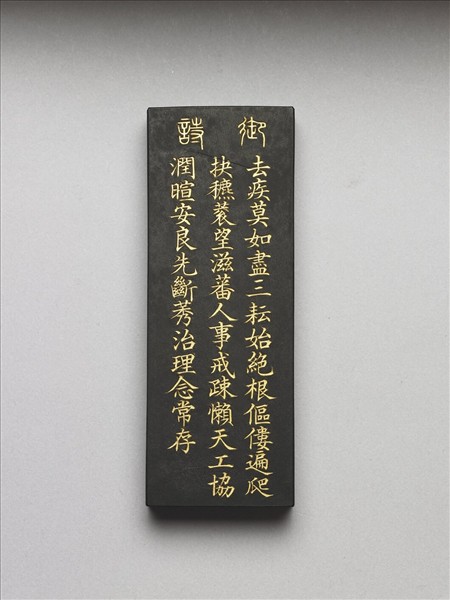 御詩
去疾莫如盡三耘始絕根傴僂遍爬
抉穮蔉望滋蕃人事戒疎懶天工協
潤暄安良先斷莠治理念常存